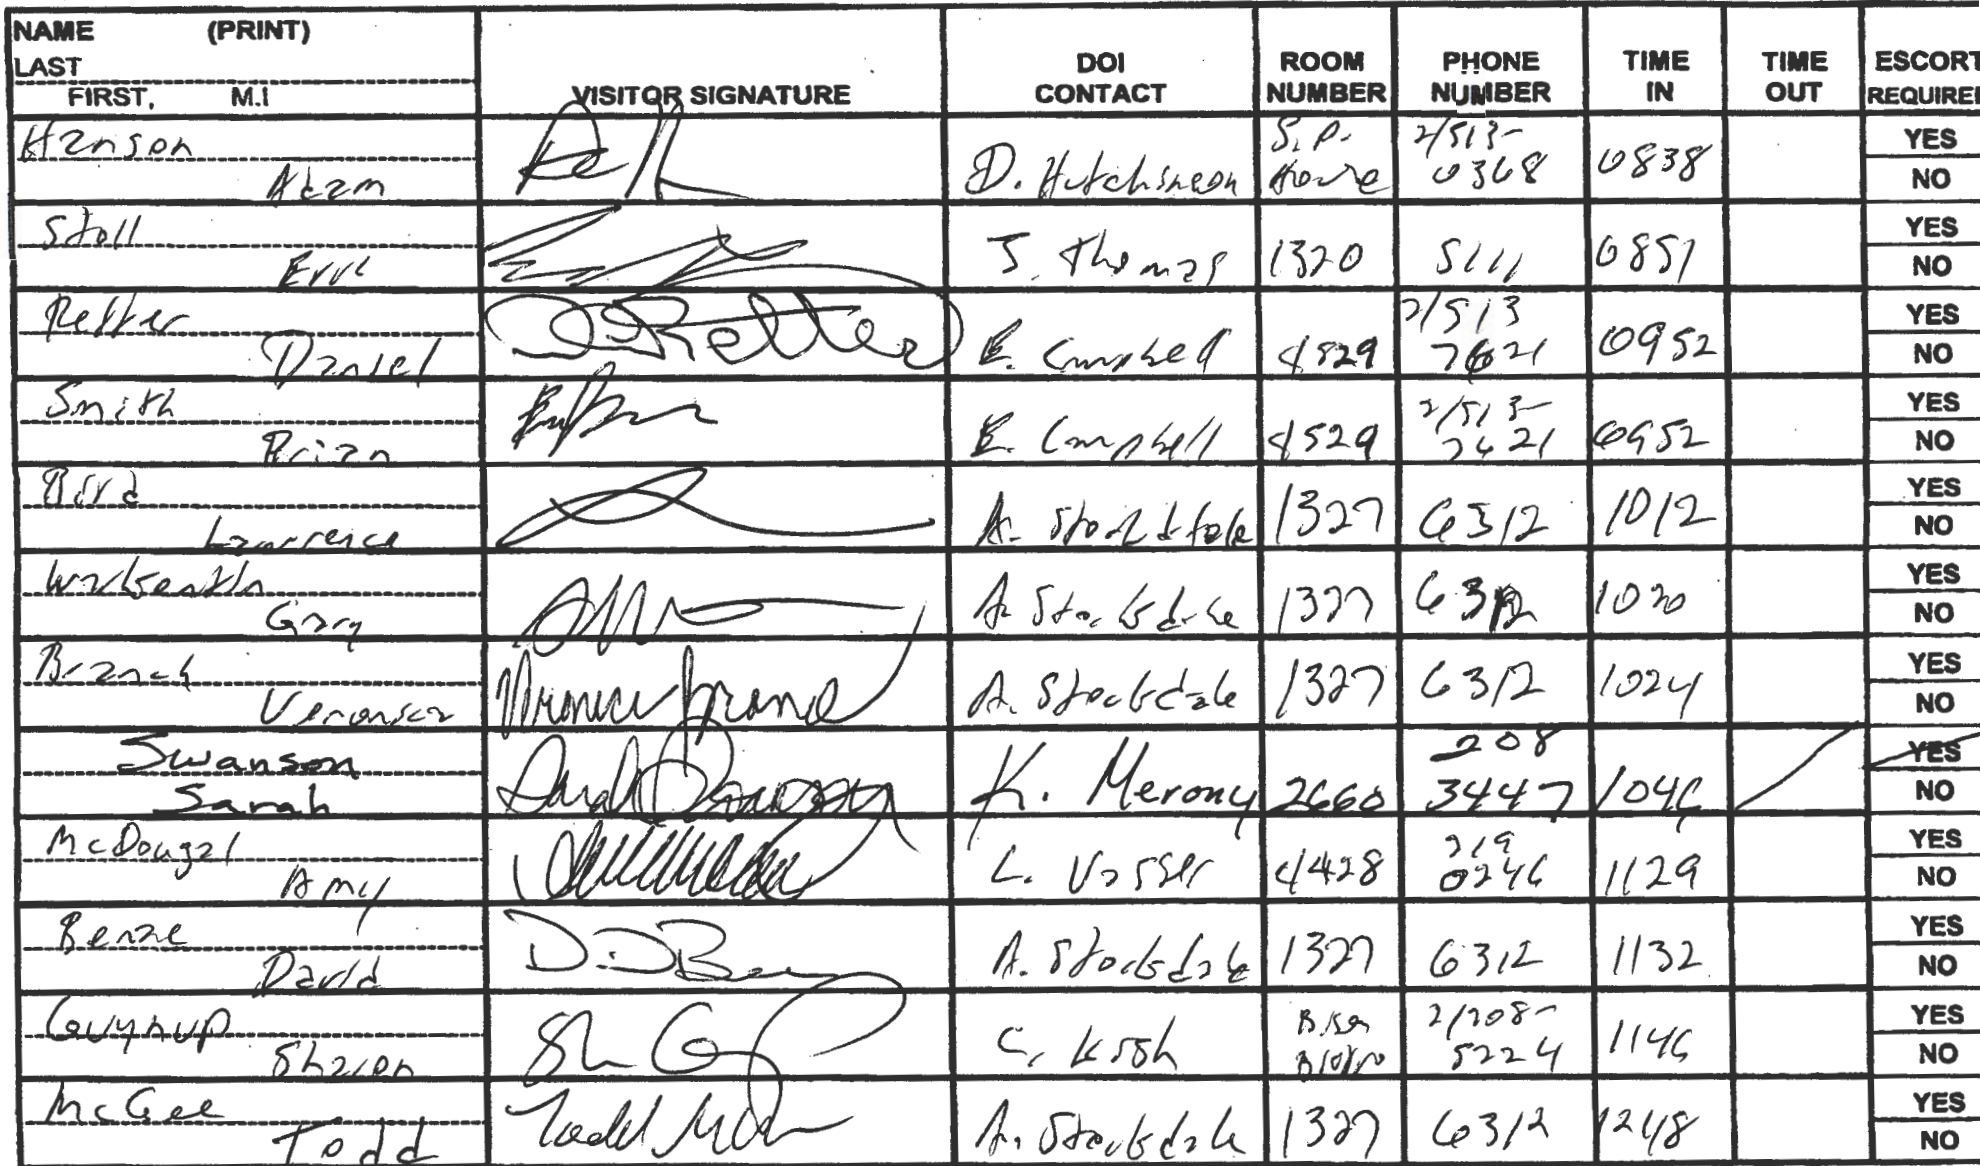 NAME (PRINT)
LAST
FIRST, M.I
VISITOR SIGNATURE
DOI CONTACT
ROOM NUMBER
PHONE NUMBER
TIME IN
TIME OUT
ESCORT REQUIRED
Hanson Adam D. Hutchinson S.P. House 2/513-0368 0838 YES NO
Stoll Eric J. Thomas 1320 5111 0851 YES NO
Retter Daniel D. Retter E. Campbell 4529 2/513 7621 0952 YES NO
Smith Brian E. Campbell 4529 2/513-7621 0952 YES NO
Bird Lawrence A. Stockdale 1327 6312 1012 YES NO
Warkentin Gary A. Stockdale 1327 6312 1020 YES NO
Branch Veronica A. Stockdale 1327 6312 1024 YES NO
Swanson Sarah K. Merony 2660 208 3447 1046 YES NO
McDougal Amy L. Vasser 4428 219 0246 1129 YES NO
David D.D.B A. Stockdale 1327 6312 1132 YES NO
Guynup Sharon C. 2/208-5224 1146 YES NO
McGee Todd Todd A. Stockdale 1327 6312 1248 YES NO